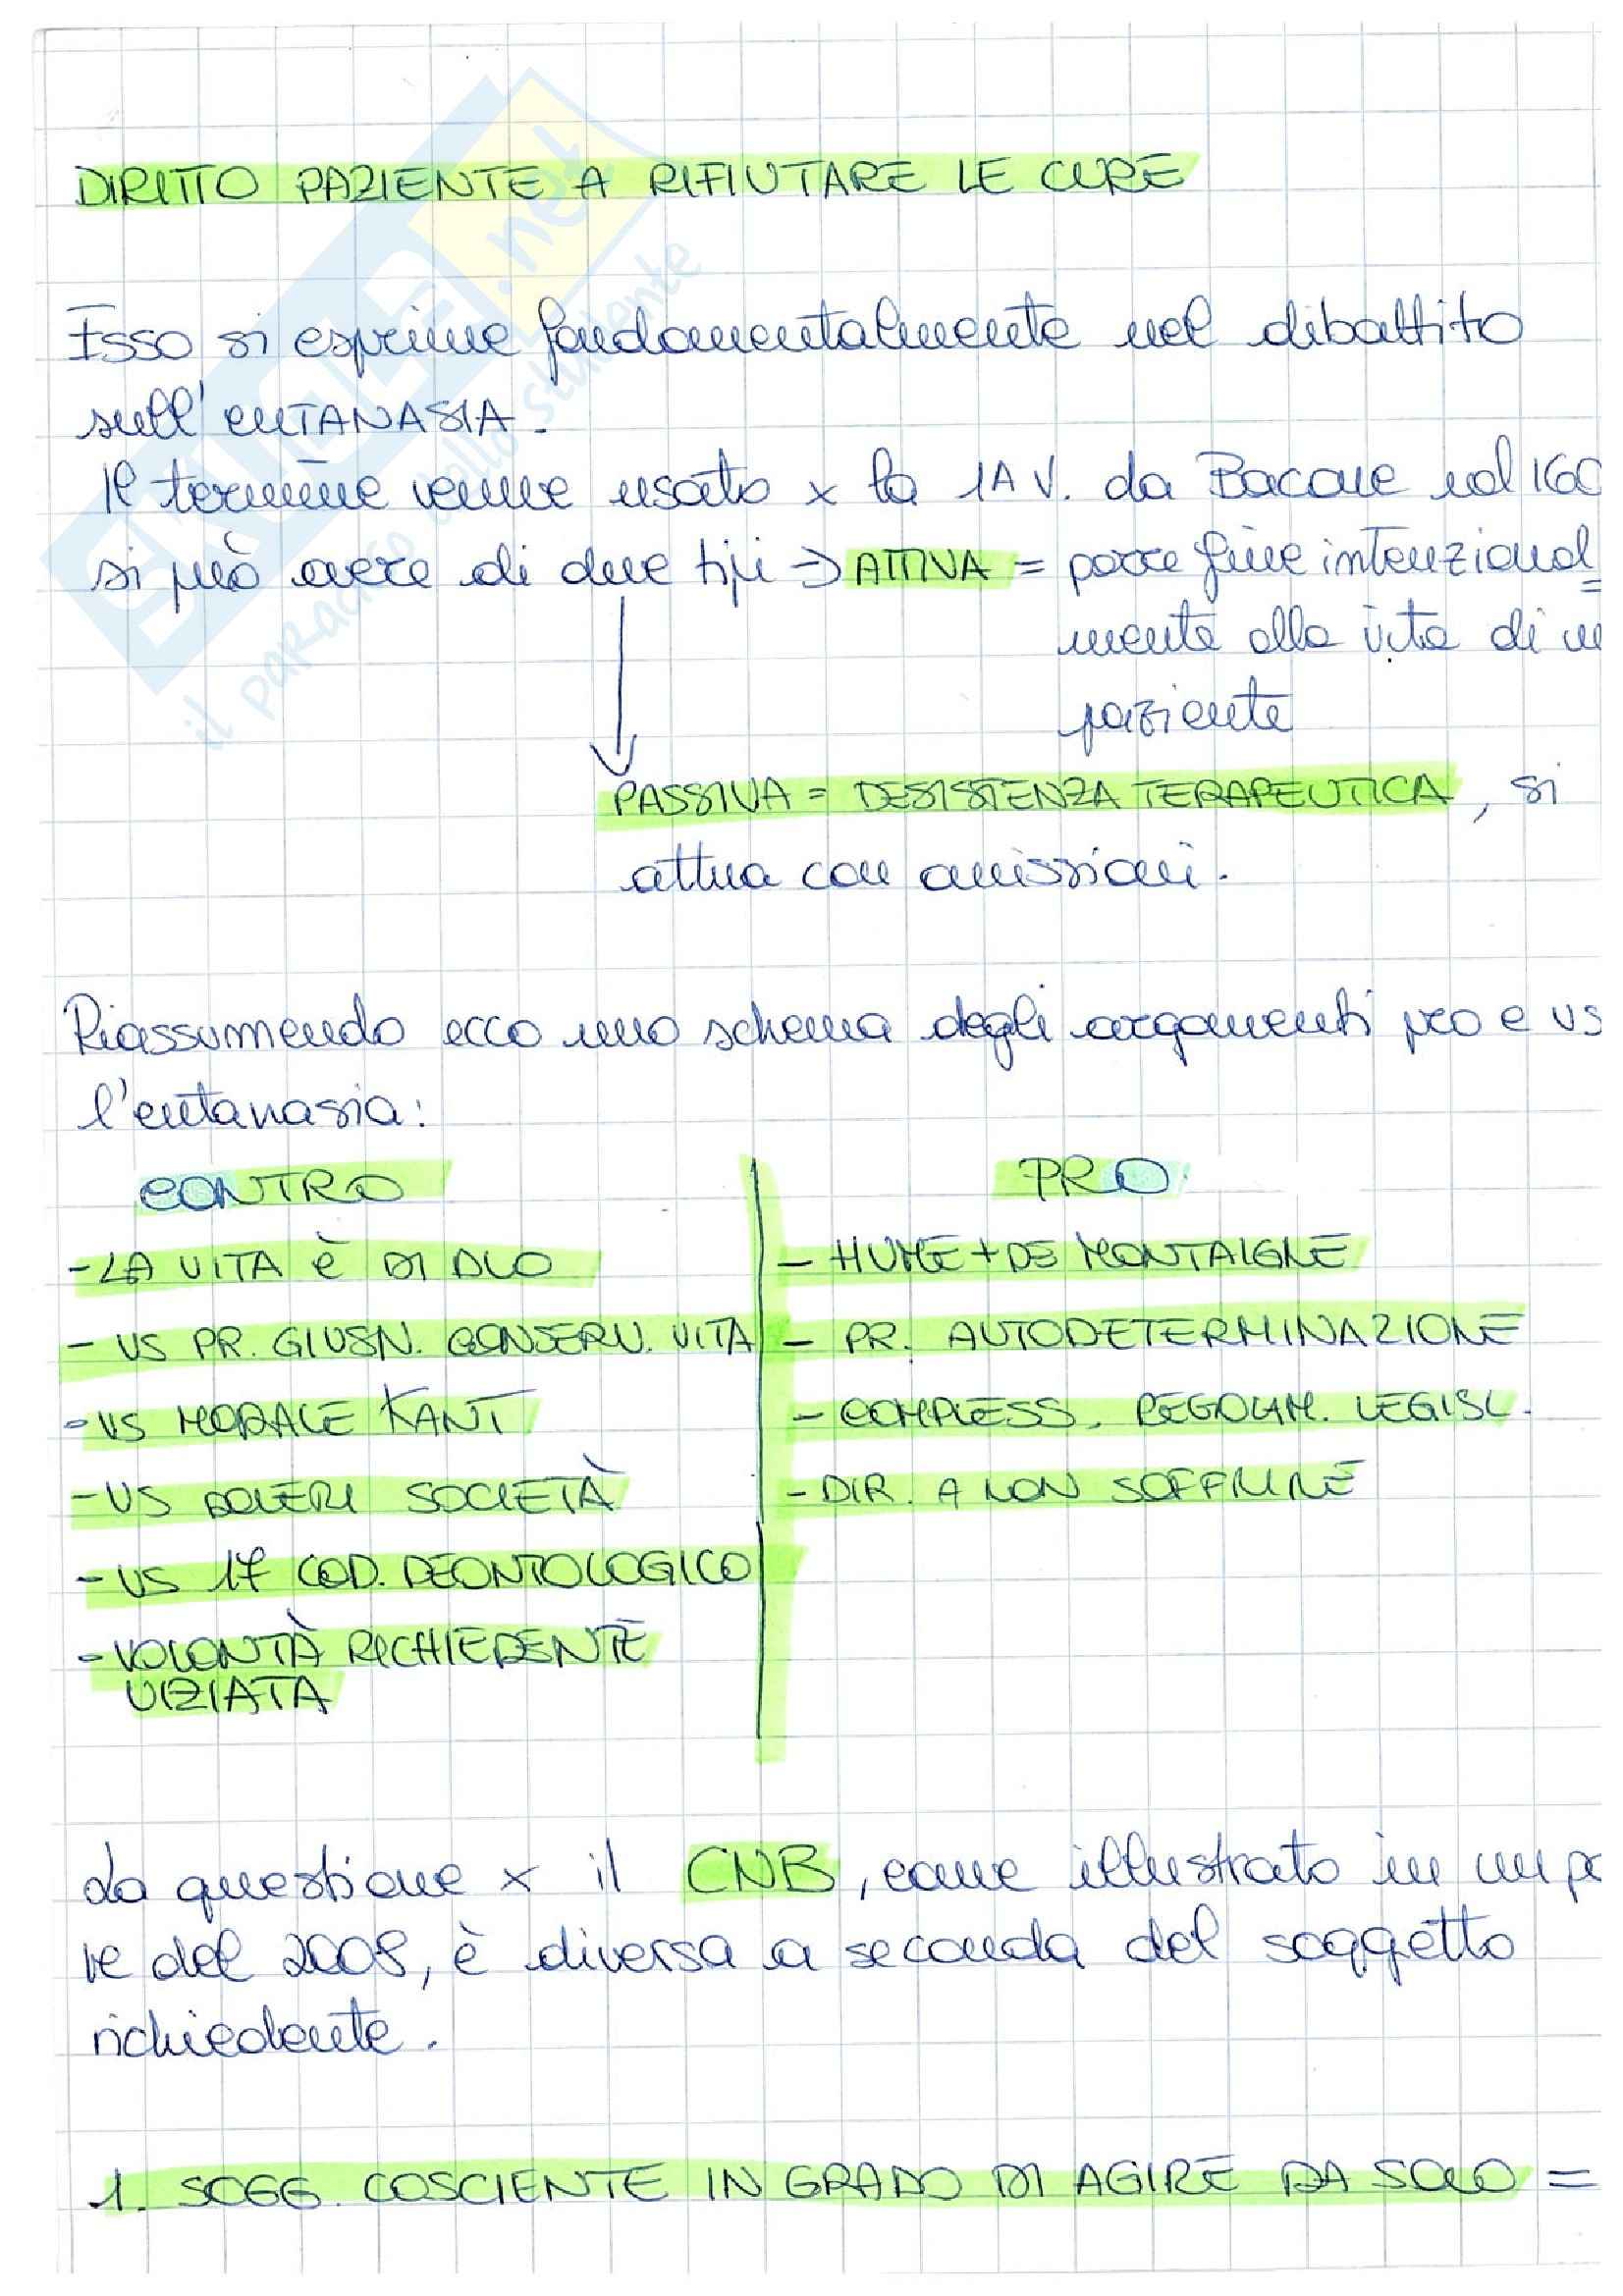 DIRITTO PAZIENTE A RIFIUTARE LE CURE
Esso si esprime fondamentalmente nel dibattito
sull'EUTANASIA.
Il termine venne usato x la 1A V. da Bacone nel 160
si può avere di due tipi → ATTIVA = porre fine intenzional
mente alla vita di u
paziente
PASSIVA = DESISTENZA TERAPEUTICA, si
attua con omissioni.
Riassumendo ecco uno schema degli argomenti pro e vs
l'eutanasia:
CONTRO
PRO
- LA VITA È DI DIO
- HUME + DE MONTAIGNE
- VS PR. GIUSN. CONSERV. VITA
- PR. AUTODETERMINAZIONE
- VS MORALE KANT
- COMPLESS. REGOLAM. LEGISL.
- VS DOVERI SOCIETÀ
- DIR. A NON SOFFRIRE
- VS 17 COD. DEONTOLOGICO
- VOLONTÀ RICHIEDENTE
VIZIATA
La questione x il CNB, come illustrato in un pa
re del 2008, è diversa a seconda del soggetto
richiedente.
1. SOGG. COSCIENTE IN GRADO DI AGIRE DA SOLO =
SKUOLA.net
il paradiso dello studente